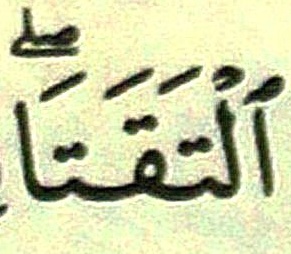 ٱلْتَقَتَاۖ